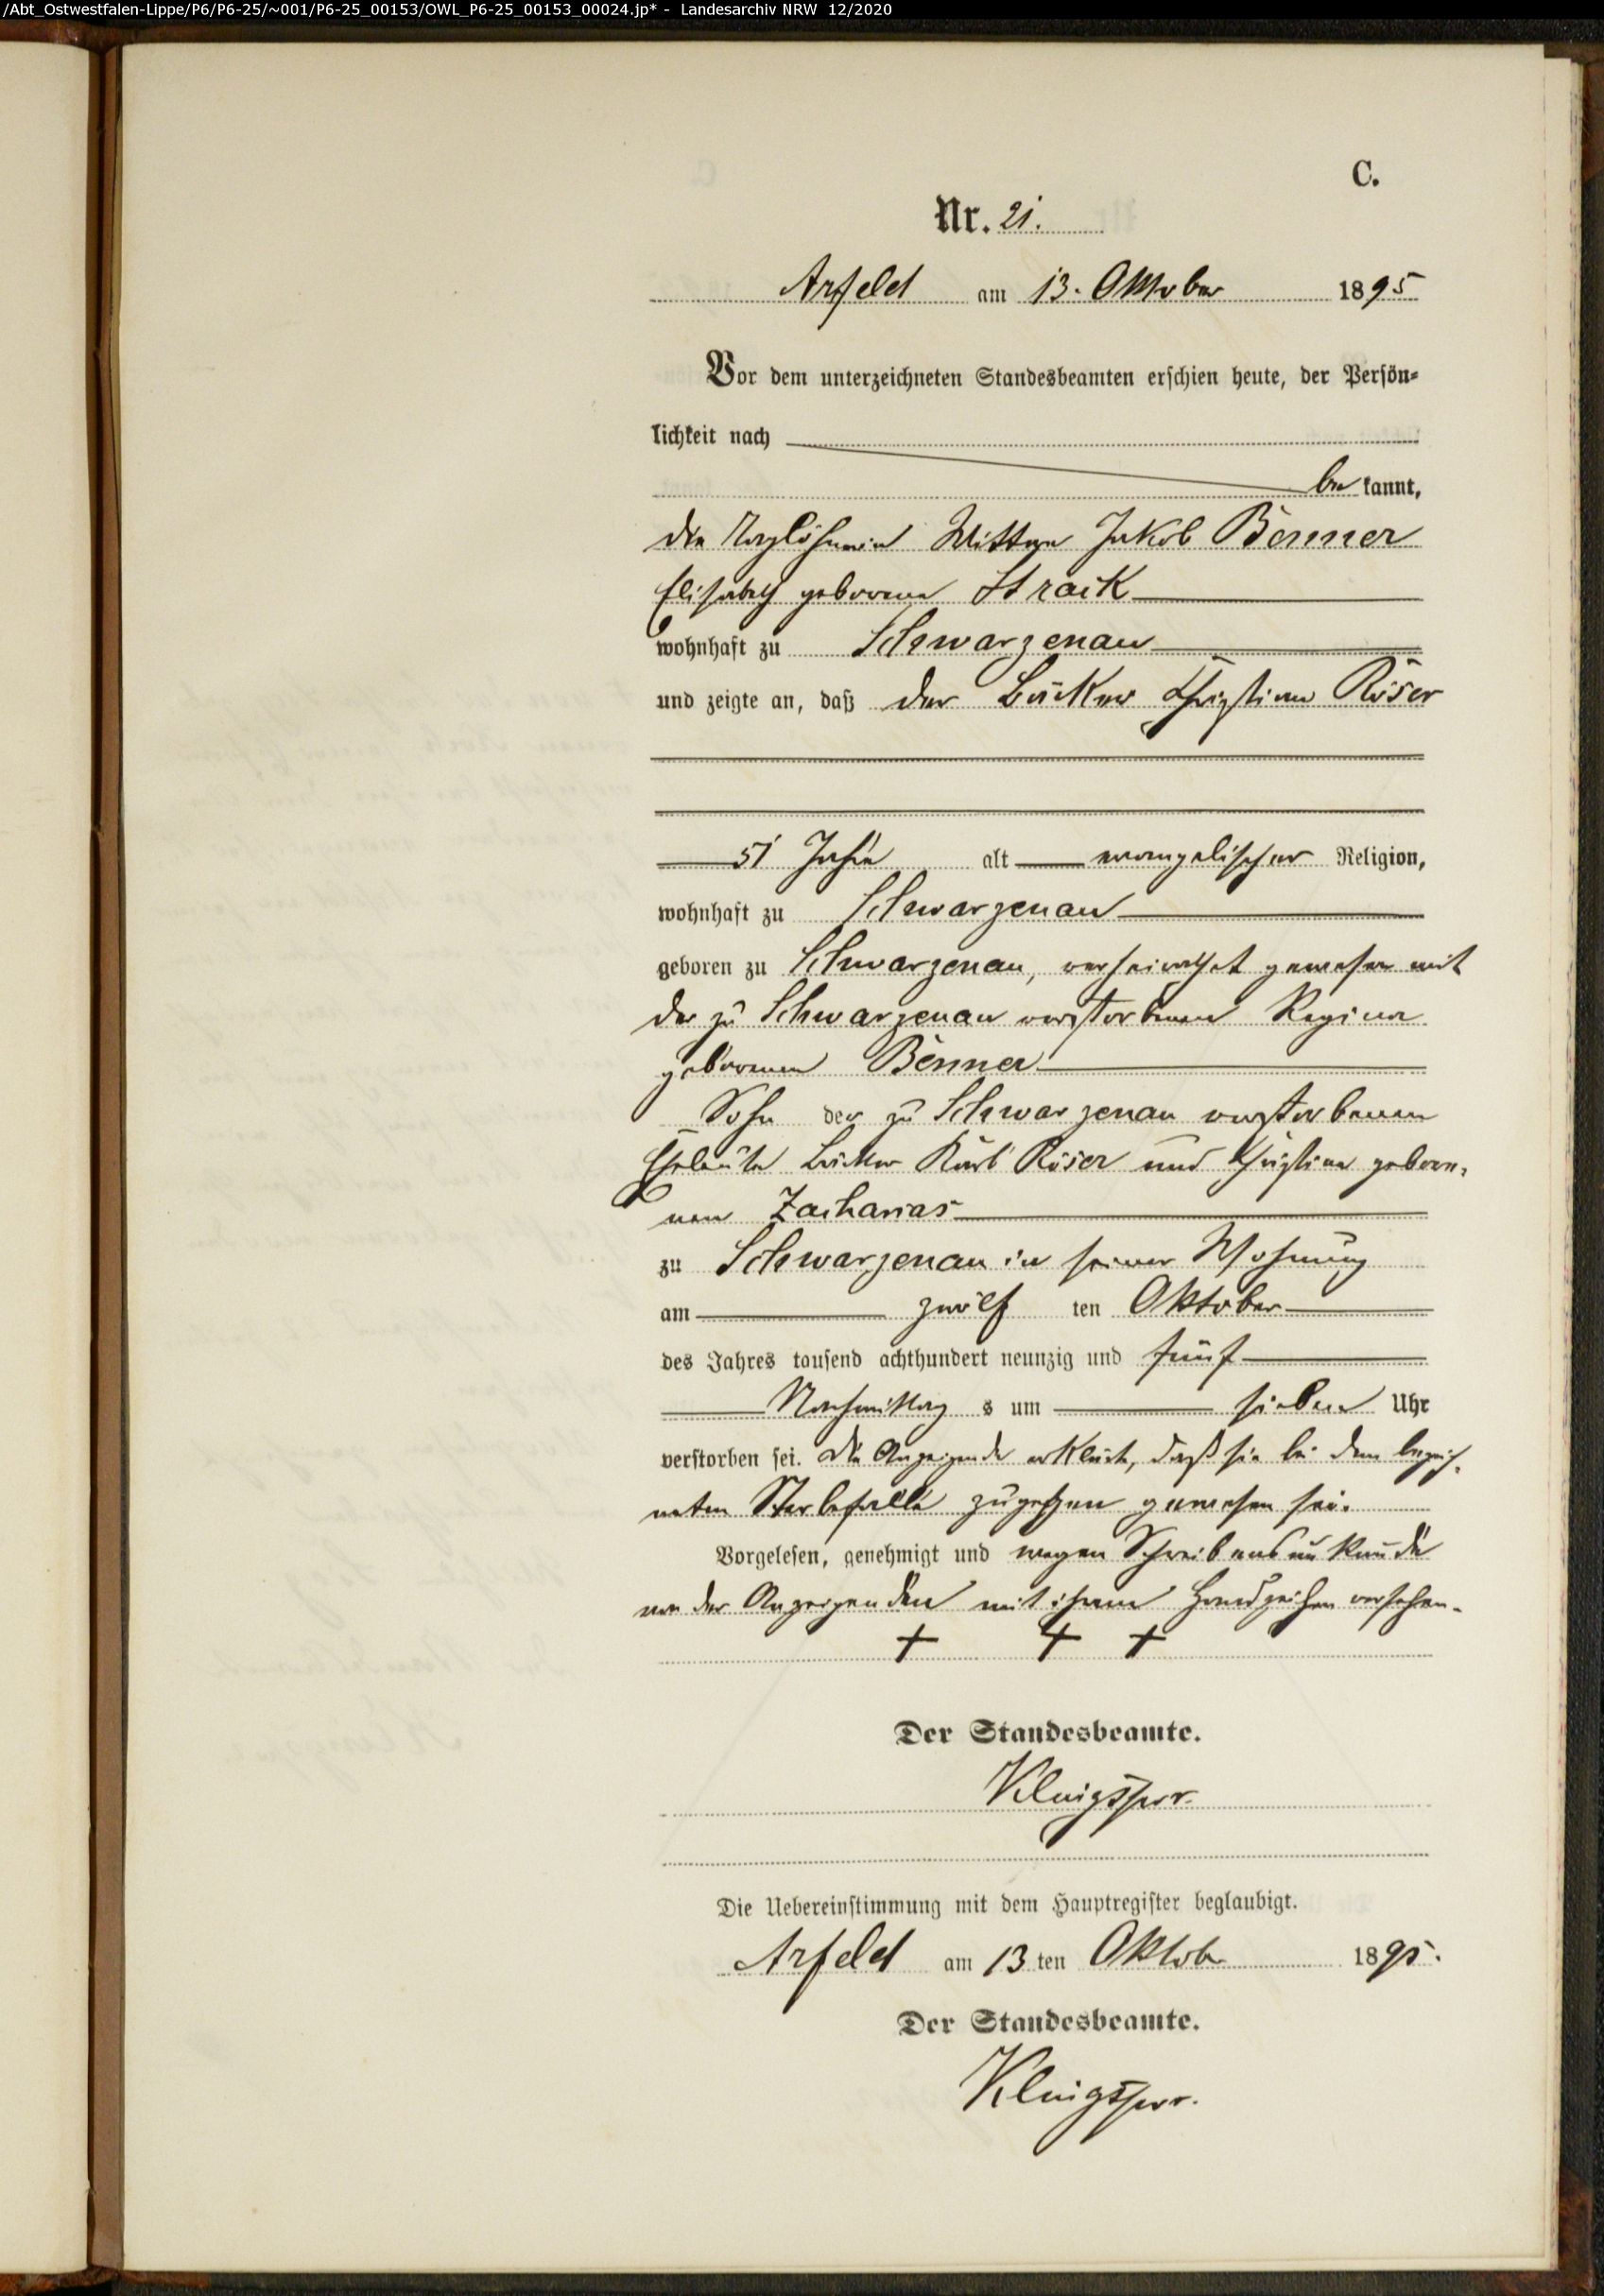 /Abt_Ostwestfalen-Lippe/P6/P6-25/~001/P6-25_00153/OWL_P6-25_00153_00024.jp* - Landesarchiv NRW 12/2020
C.
Nr. 21.
Arfeld am 13. Oktober 1895
Vor dem unterzeichneten Standesbeamten erschien heute, der Persön-
lichkeit nach
be kannt,
die Taglöhnerin Wittwe Jakob Benner
Elisabeth geborene Strack
wohnhaft zu Schwarzenau
und zeigte an, daß der Bäcker Christian Röser
51 Jahre alt evangelischer Religion,
wohnhaft zu Schwarzenau
geboren zu Schwarzenau, verheirathet gewesen mit
der zu Schwarzenau verstorbenen Regina
geborenen Benner
Sohn der zu Schwarzenau verstorbenen
Eheleute Bäcker Karl Röser und Christine gebore-
nen Zacharias
zu Schwarzenau in seiner Wohnung
am zwölf ten Oktober
des Jahres tausend achthundert neunzig und fünf
Nachmittag s um sieben Uhr
verstorben sei. Die Anzeigende erklärte, daß sie bei dem bezeich-
neten Sterbefalle zugegen gewesen sei.
Vorgelesen, genehmigt und wegen Schreibensunkunde
von der Anzeigenden mit ihrem Handzeichen versehen.
+ + +
Der Standesbeamte.
Klingspor.
Die Uebereinstimmung mit dem Hauptregister beglaubigt.
Arfeld am 13 ten Oktober 1895.
Der Standesbeamte.
Klingspor.